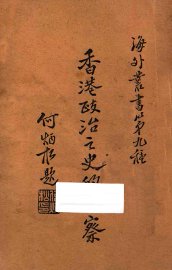 海外叢書之第九種
香港政治之史 察
何炳松題